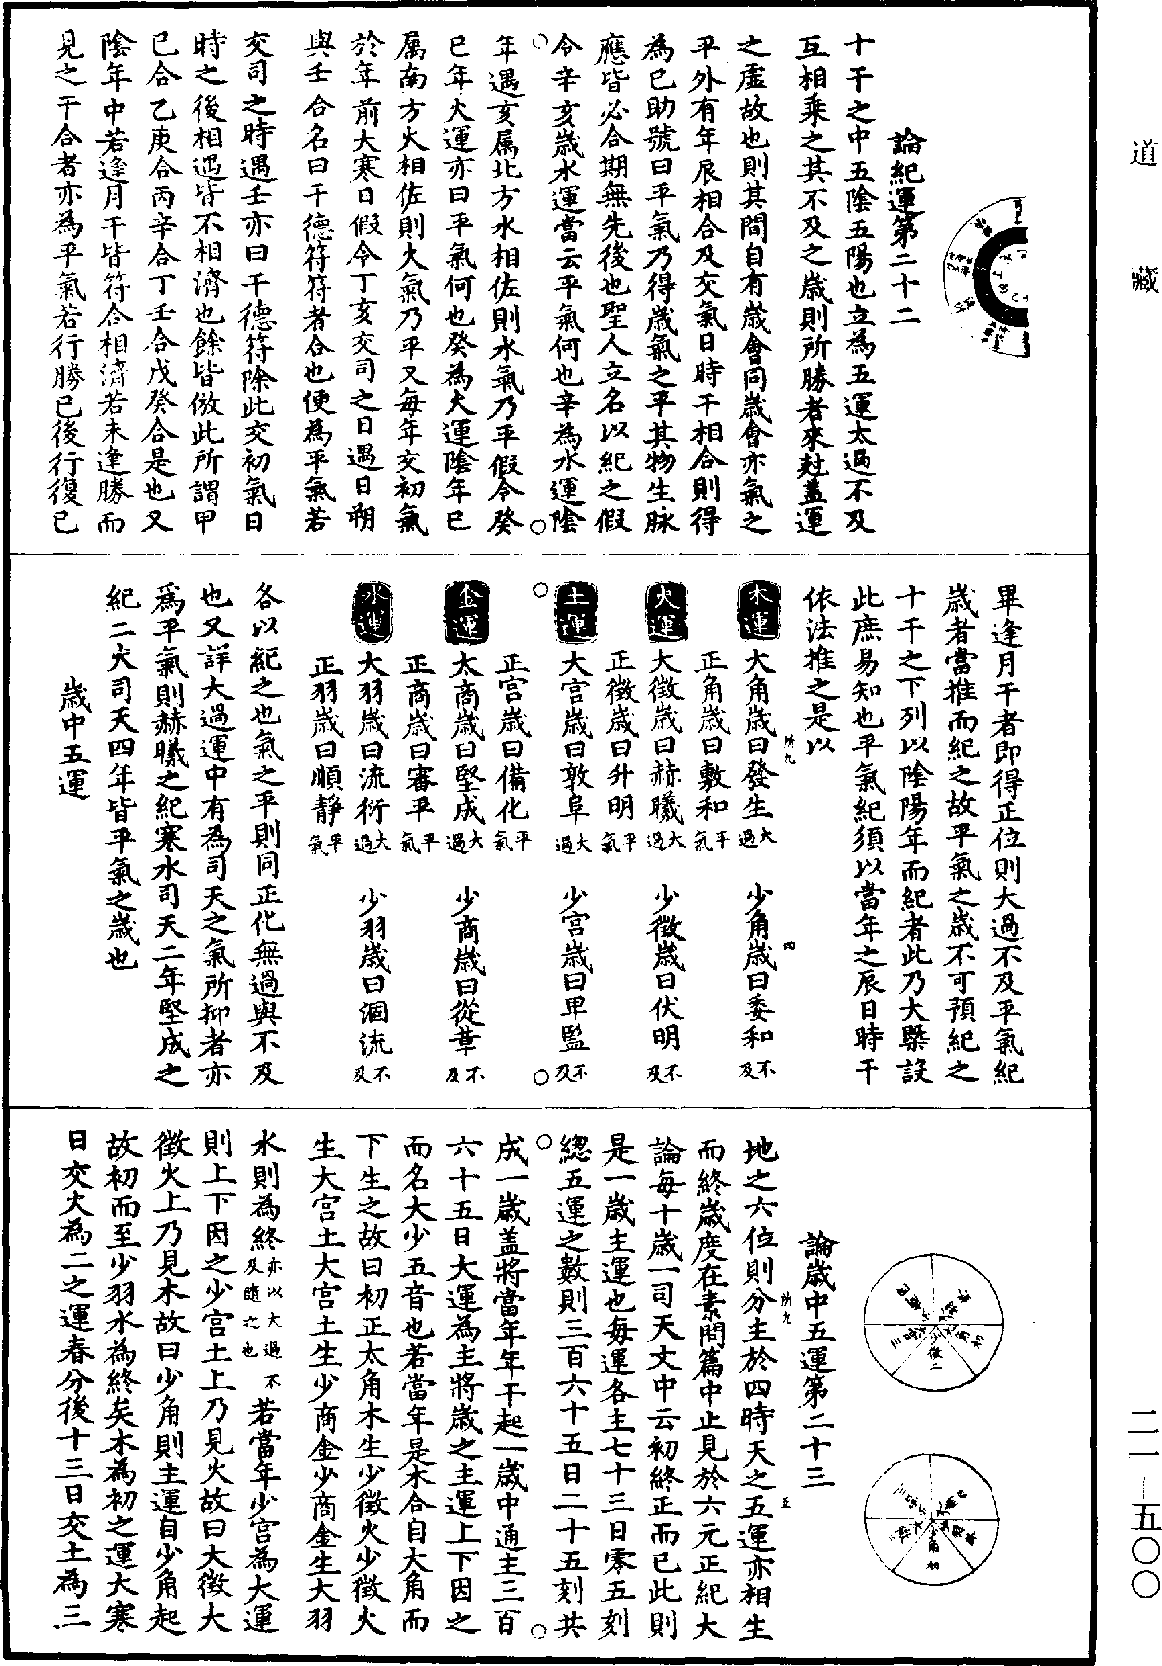 道藏
論紀運第二十二
十干之中五陰五陽也立為五運太過不及
互相乘之其不及之歲則所勝者來尅蓋運
之虛故也則其間自有歲會同歲會亦氣之
平外有年辰相合及交氣日時干相合則得
為已助號曰平氣乃得歲氣之平其物生脉
應皆必合期無先後也聖人立名以紀之假
令辛亥歲水運當云平氣何也辛為水運陰
年遇亥属北方水相佐則水氣乃平假令癸
巳年火運亦曰平氣何也癸為火運陰年巳
属南方火相佐則火氣乃平又每年交初氣
於年前大寒日假令丁亥交司之日遇日朔
與壬合名曰干德符符者合也便為平氣若
交司之時遇壬亦曰干德符除此交初氣日
時之後相遇皆不相濟也餘皆倣此所謂甲
已合乙庚合丙辛合丁壬合戊癸合是也又
陰年中若逢月干皆符合相濟若未逢勝而
見之干合者亦為平氣若行勝已後行復已
畢逢月干者即得正位則大過不及平氣紀
歲者當推而紀之故平氣之歲不可預紀之
十干之下列以陰陽年而紀者此乃大槩設
此庶易知也平氣紀須以當年之辰日時干
依法推之是以
木運 大角歲曰發生大過 少角歲曰委和不及
正角歲曰敷和平氣
火運 大徵歲曰赫曦大過 少徵歲曰伏明不及
正徵歲曰升明平氣
土運 大宮歲曰敦阜大過 少宮歲曰卑監不及
正宮歲曰備化平氣
金運 太商歲曰堅成大過 少商歲曰從革不及
正商歲曰審平平氣
水運 大羽歲曰流衍大過 少羽歲曰涸流不及
正羽歲曰順靜平氣
各以紀之也氣之平則同正化無過與不及
也又詳大過運中有為司天之氣所抑者亦
爲平氣則赫曦之紀寒水司天二年堅成之
紀二火司天四年皆平氣之歲也
歲中五運
論歲中五運第二十三
地之六位則分主於四時天之五運亦相生
而終歲度在素問篇中止見於六元正紀大
論每十歲一司天文中云初終正而已此則
是一歲主運也每運各主七十三日零五刻
總五運之數則三百六十五日二十五刻共
成一歲蓋將當年年干起一歲中通主三百
六十五日大運為主將歲之主運上下因之
而名大少五音也若當年是木合自大角而
下生之故曰初正太角木生少徵火少徵火
生大宮土大宮土生少商金少商金生大羽
水則為終亦以大過不及隨之也若當年少宮為大運
則上下因之少宮土上乃見火故曰大徵大
徵火上乃見木故曰少角則主運自少角起
故初而至少羽水為終矣木為初之運大寒
日交火為二之運春分後十三日交土為三
二一—五〇〇